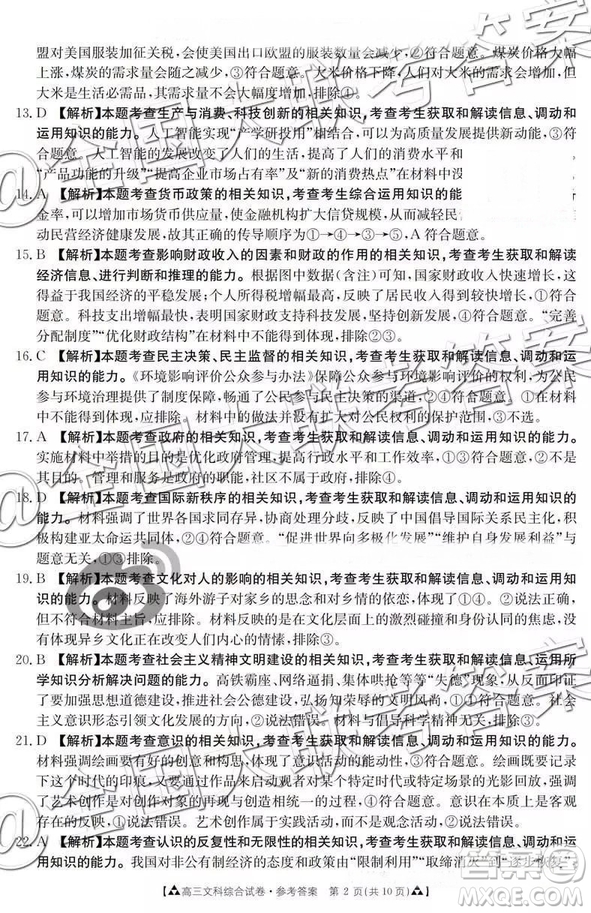 盟对美国服装加征关税，会使美国出口欧盟的服装数量会减少，②符合题意。煤炭价格大幅
上涨，煤炭的需求量会随之减少，③符合题意。大米价格下降，人们对大米的需求会增加，但
大米是生活必需品，其需求量不会大幅度增加，排除④。
13. D 【解析】本题考查生产与消费、科技创新的相关知识，考查考生获取和解读信息、调动和
运用知识的能力。人工智能实现“产学研投用”相结合，可以为高质量发展提供重要支
撑，人工智能的发展变化，提高了人们的消费水平和
“产品功能的升级”“提高企业市场占有率”及“新的消费热点”在材料中没
14. A 【解析】本题考查货币政策的相关知识，考查考生综合运用知识的能
金率，可以增加市场货币供应量，使金融机构扩大信贷规模，从而
动民营经济健康发展，故为①→④→③→②，A符合题意。
15. B 【解析】本题考查影响财政收入的因素和财政的作用的相关知识，考查考生获取和解读
经济信息、进行判断和推理的能力。根据图中数据(含注)可知，国家财政收入快速增长，这
得益于我国经济的平稳发展；个人所得税增幅最大，反映了居民收入得到较快增长，①符合
题意。科技支出增幅大，表明国家财政支持科技发展，坚持创新发展，④符合题意。“完善
分配制度”“优化财政结构”在材料中得不到体现，排除②③。
16. C 【解析】本题考查民主决策、民主监督的相关知识，考查考生获取和解读信息、调动和运
用知识的能力。《环境影响评价公众参与办法》保障公众参与环境影响评价的权利，为公众
参与环境治理提供了制度保障，畅通了公民参与民主决策的渠道，②④符合题意。①
在材料中得不到体现，应排除。基层自治组织不属于国家政权机关的保护范围，③不选。
17. A 【解析】本题考查政府的相关知识，考查考生获取和解读信息、调动和运用知识的能力。
实施材料中举措的目的是优化公共服务，保障和改善民生，①②正确。④不是材料举措的
目的。管理和服务是政府的功能，社区不属于政府，排除③。
18. D 【解析】本题考查国际新秩序的相关知识，考查考生获取和解读信息、调动和运用知识
的能力。材料强调了世界各国求同存异、协商弥合分歧，反映了中国倡导国际关系民主化，积
极构建亚太命运共同体，②④符合题意。“促进世界向多极化发展”“维护新兴国家利益”与
题意无关，①③排除。
19. B 【解析】本题考查文化对人的影响的相关知识，考查考生获取和解读信息、调动和运用知
识的能力。材料反映了海外游子对家乡的思念和对乡情的依恋，①④符合题意。②说法正
确，但体现不了主旨。异乡客感受到的是在文化层面上的激烈碰撞和身份认同的焦虑，但
体现不了异乡文化正在改变传统文化，排除③。
20. B 【解析】本题考查社会主义精神文明建设的相关知识，考查考生获取和解读信息、运用所
学知识分析解决问题的能力。高铁霸座、网络逼捐、集体哄抢等“失德”现象，①④符合题意，表明
了要加强思想道德建设，推进社会公德建设，弘扬知荣辱的文明风尚，①④符合题意。意识
形态引领文化发展的方向，②说法错误。材料并未体现建设共享文化，排除③。
21. D 【解析】本题考查意识的相关知识，考查考生获取和解读信息、调动和运用知识的能力。
材料强调绘画创造一定要有好的创意和思想，反映了意识活动具有主动创造性，③符合题
意。绘画既可以是画家内心世界的写照，也可以启迪观者对某个特定时代或特定场景的光影回放，强调
了艺术创作是对创作对象的再现与创造相统一的过程，④符合题意。意识是对客观存在的
反映，①说法错误。艺术创作属于实践活动，而不是无条件的，②说法错误。
22. A 【解析】本题考查认识的反复性和无限性的相关知识，考查考生获取和解读信息、调动和
运用知识的能力。我国对非公有制经济的态度，由“限制利用”“取缔消灭”到
高三文科综合试卷·参考答案 第 2 页(共 10 页)
@全国大联考答案